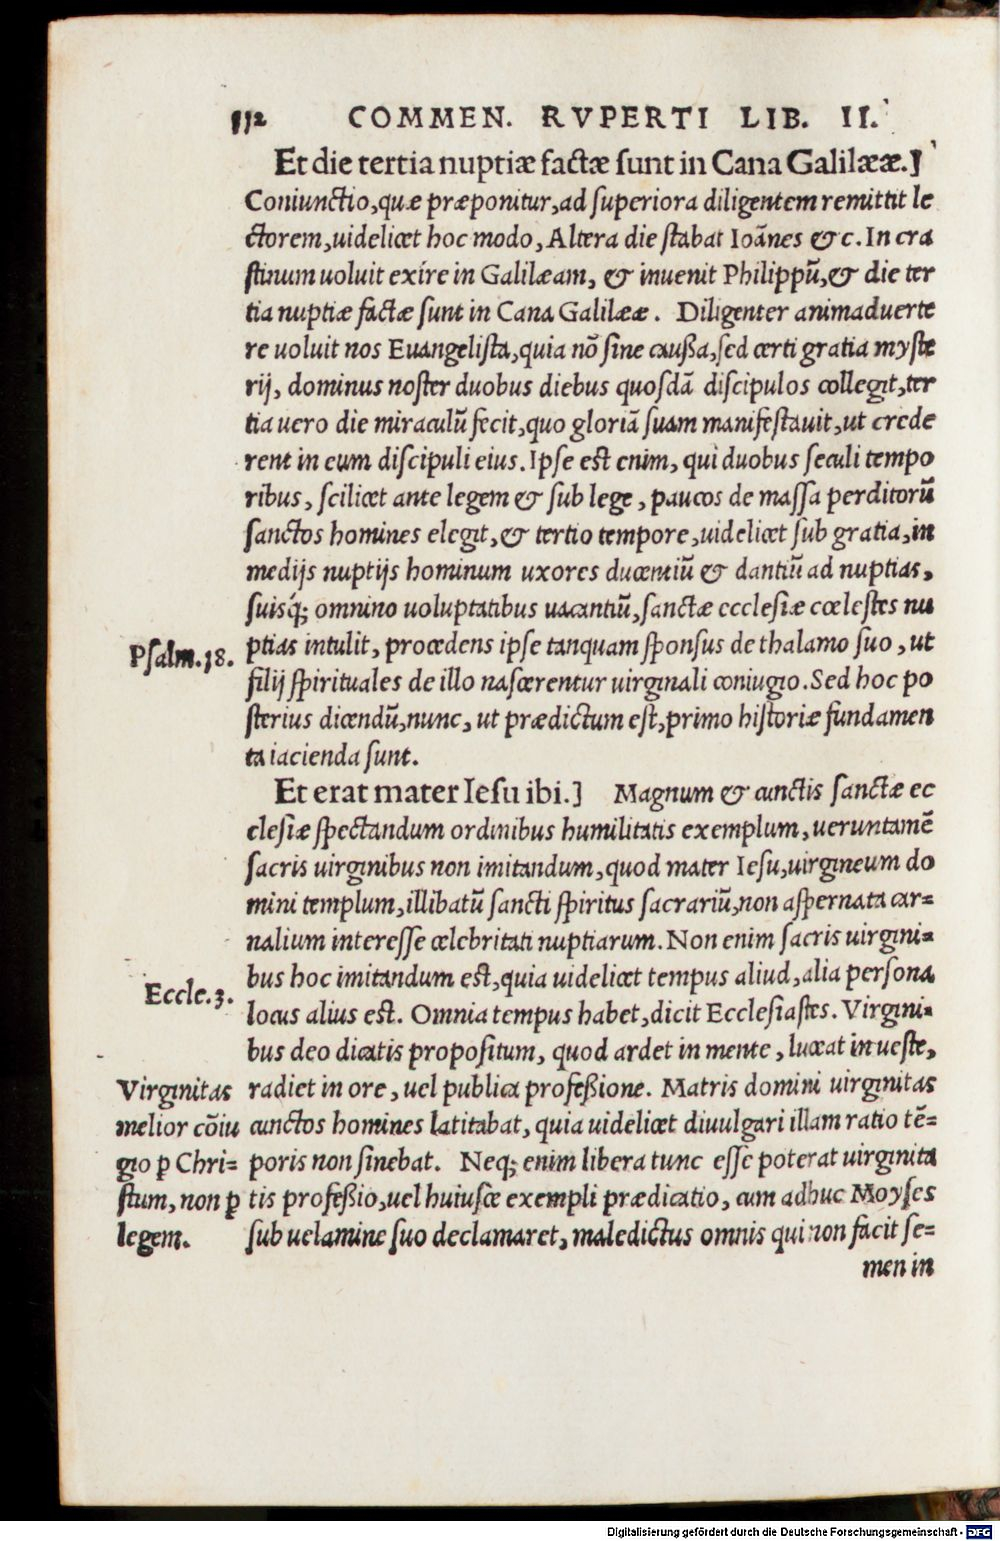 112 COMMEN. RVPERTI LIB. II.
Et die tertia nuptiæ factæ sunt in Cana Galilææ.]
Coniunctio,quæ præponitur,ad superiora diligentem remittit le
ctorem,uidelicet hoc modo, Altera die stabat Ioãnes & c. In cra
stinum uoluit exire in Galilæam, & inuenit Philippũ,& die ter
tia nuptiæ factæ sunt in Cana Galilææ. Diligenter animaduerte
re uoluit nos Euangelista,quia nõ sine caußa,sed certi gratia myste
rij, dominus noster duobus diebus quosdã discipulos collegit,ter
tia uero die miraculũ fecit,quo gloriã suam manifestauit,ut crede
rent in eum discipuli eius. Ipse est enim, qui duobus seculi tempo
ribus, scilicet ante legem & sub lege, paucos de massa perditorũ
sanctos homines elegit,& tertio tempore,uidelicet sub gratia,in
medijs nuptijs hominum uxores ducentiũ & dantiũ ad nuptias,
suisq́; omnino uoluptatibus uacantiũ,sanctæ ecclesiæ cœlestes nu
Psalm.18. ptias intulit, procedens ipse tanquam sponsus de thalamo suo, ut
filij spirituales de illo nascerentur uirginali coniugio. Sed hoc po
sterius dicendũ,nunc, ut prædictum est,primo historiæ fundamen
ta iacienda sunt.
Et erat mater Iesu ibi.] Magnum & cunctis sanctæ ec
clesiæ spectandum ordinibus humilitatis exemplum, ueruntamẽ
sacris uirginibus non imitandum,quod mater Iesu,uirgineum do
mini templum,illibatũ sancti spiritus sacrariũ,non aspernata car=
nalium interesse celebritati nuptiarum. Non enim sacris uirgini=
bus hoc imitandum est,quia uidelicet tempus aliud,alia persona
Eccle.3. locus alius est. Omnia tempus habet,dicit Ecclesiastes. Virgini=
bus deo dicatis propositum, quod ardet in mente, luceat in ueste,
Virginitas radiet in ore, uel publica profeßione. Matris domini uirginitas
melior cõiu cunctos homines latitabat, quia uidelicet diuulgari illam ratio tẽ=
gio ꝑ Chri= poris non sinebat. Neq; enim libera tunc esse poterat uirginita
stum, non ꝑ tis profeßio,uel huiusce exempli prædicatio, cum adhuc Moyses
legem. sub uelamine suo declamaret, maledictus omnis qui non facit se=
men in
Digitalisierung gefördert durch die Deutsche Forschungsgemeinschaft - DFG